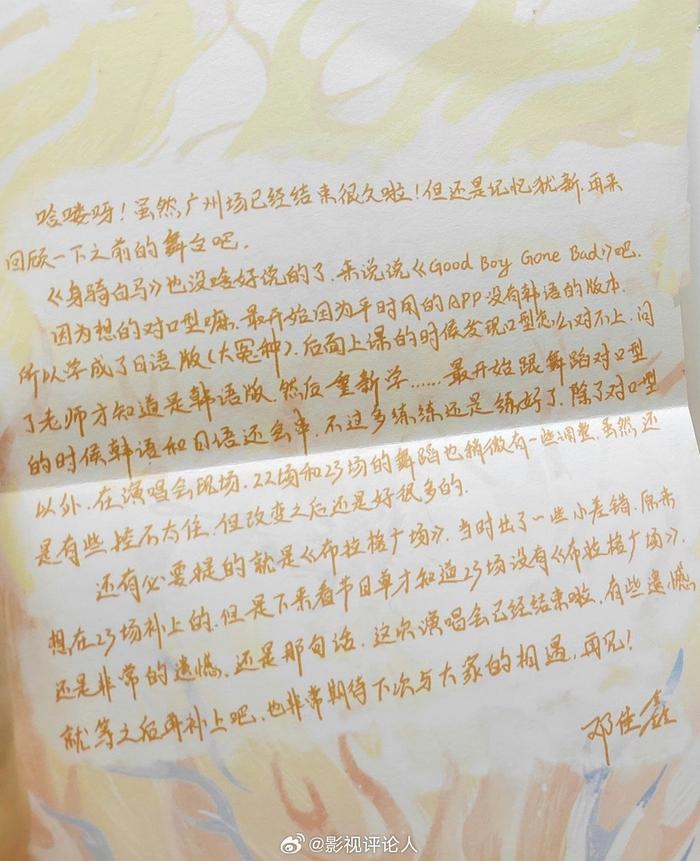 哈喽呀！虽然广州场已经结束很久啦！但还是记忆犹新，再来
回顾一下之前的舞台吧.
《身骑白马》也没啥好说的了，来说说《Good Boy Gone Bad》吧.
因为想的对口型嘛、最开始因为平时用的APP没有韩语的版本.
所以学成了日语版（大冤种）.后面上课的时候发现口型怎么对不上.问
了老师才知道是韩语版，然后重新学……最开始跟舞蹈对口型
的时候韩语和日语还会串.不过多练练还是练好了.除了对口型
以外.在演唱会现场，22场和23场的舞蹈也稍微有一些调整.虽然还
是有些控不太住.但改变之后还是好很多的.
还有必要提的就是《布拉格广场》.当时出了一些小差错.原来
想在23场补上的.但是下来看节目单才知道23场没有《布拉格广场》.
还是非常的遗憾.还是那句话.这次演唱会已经结束啦.有些遗憾
就等之后再补上吧.也非常期待下次与大家的相遇，再见！
邓佳鑫
@影视评论人